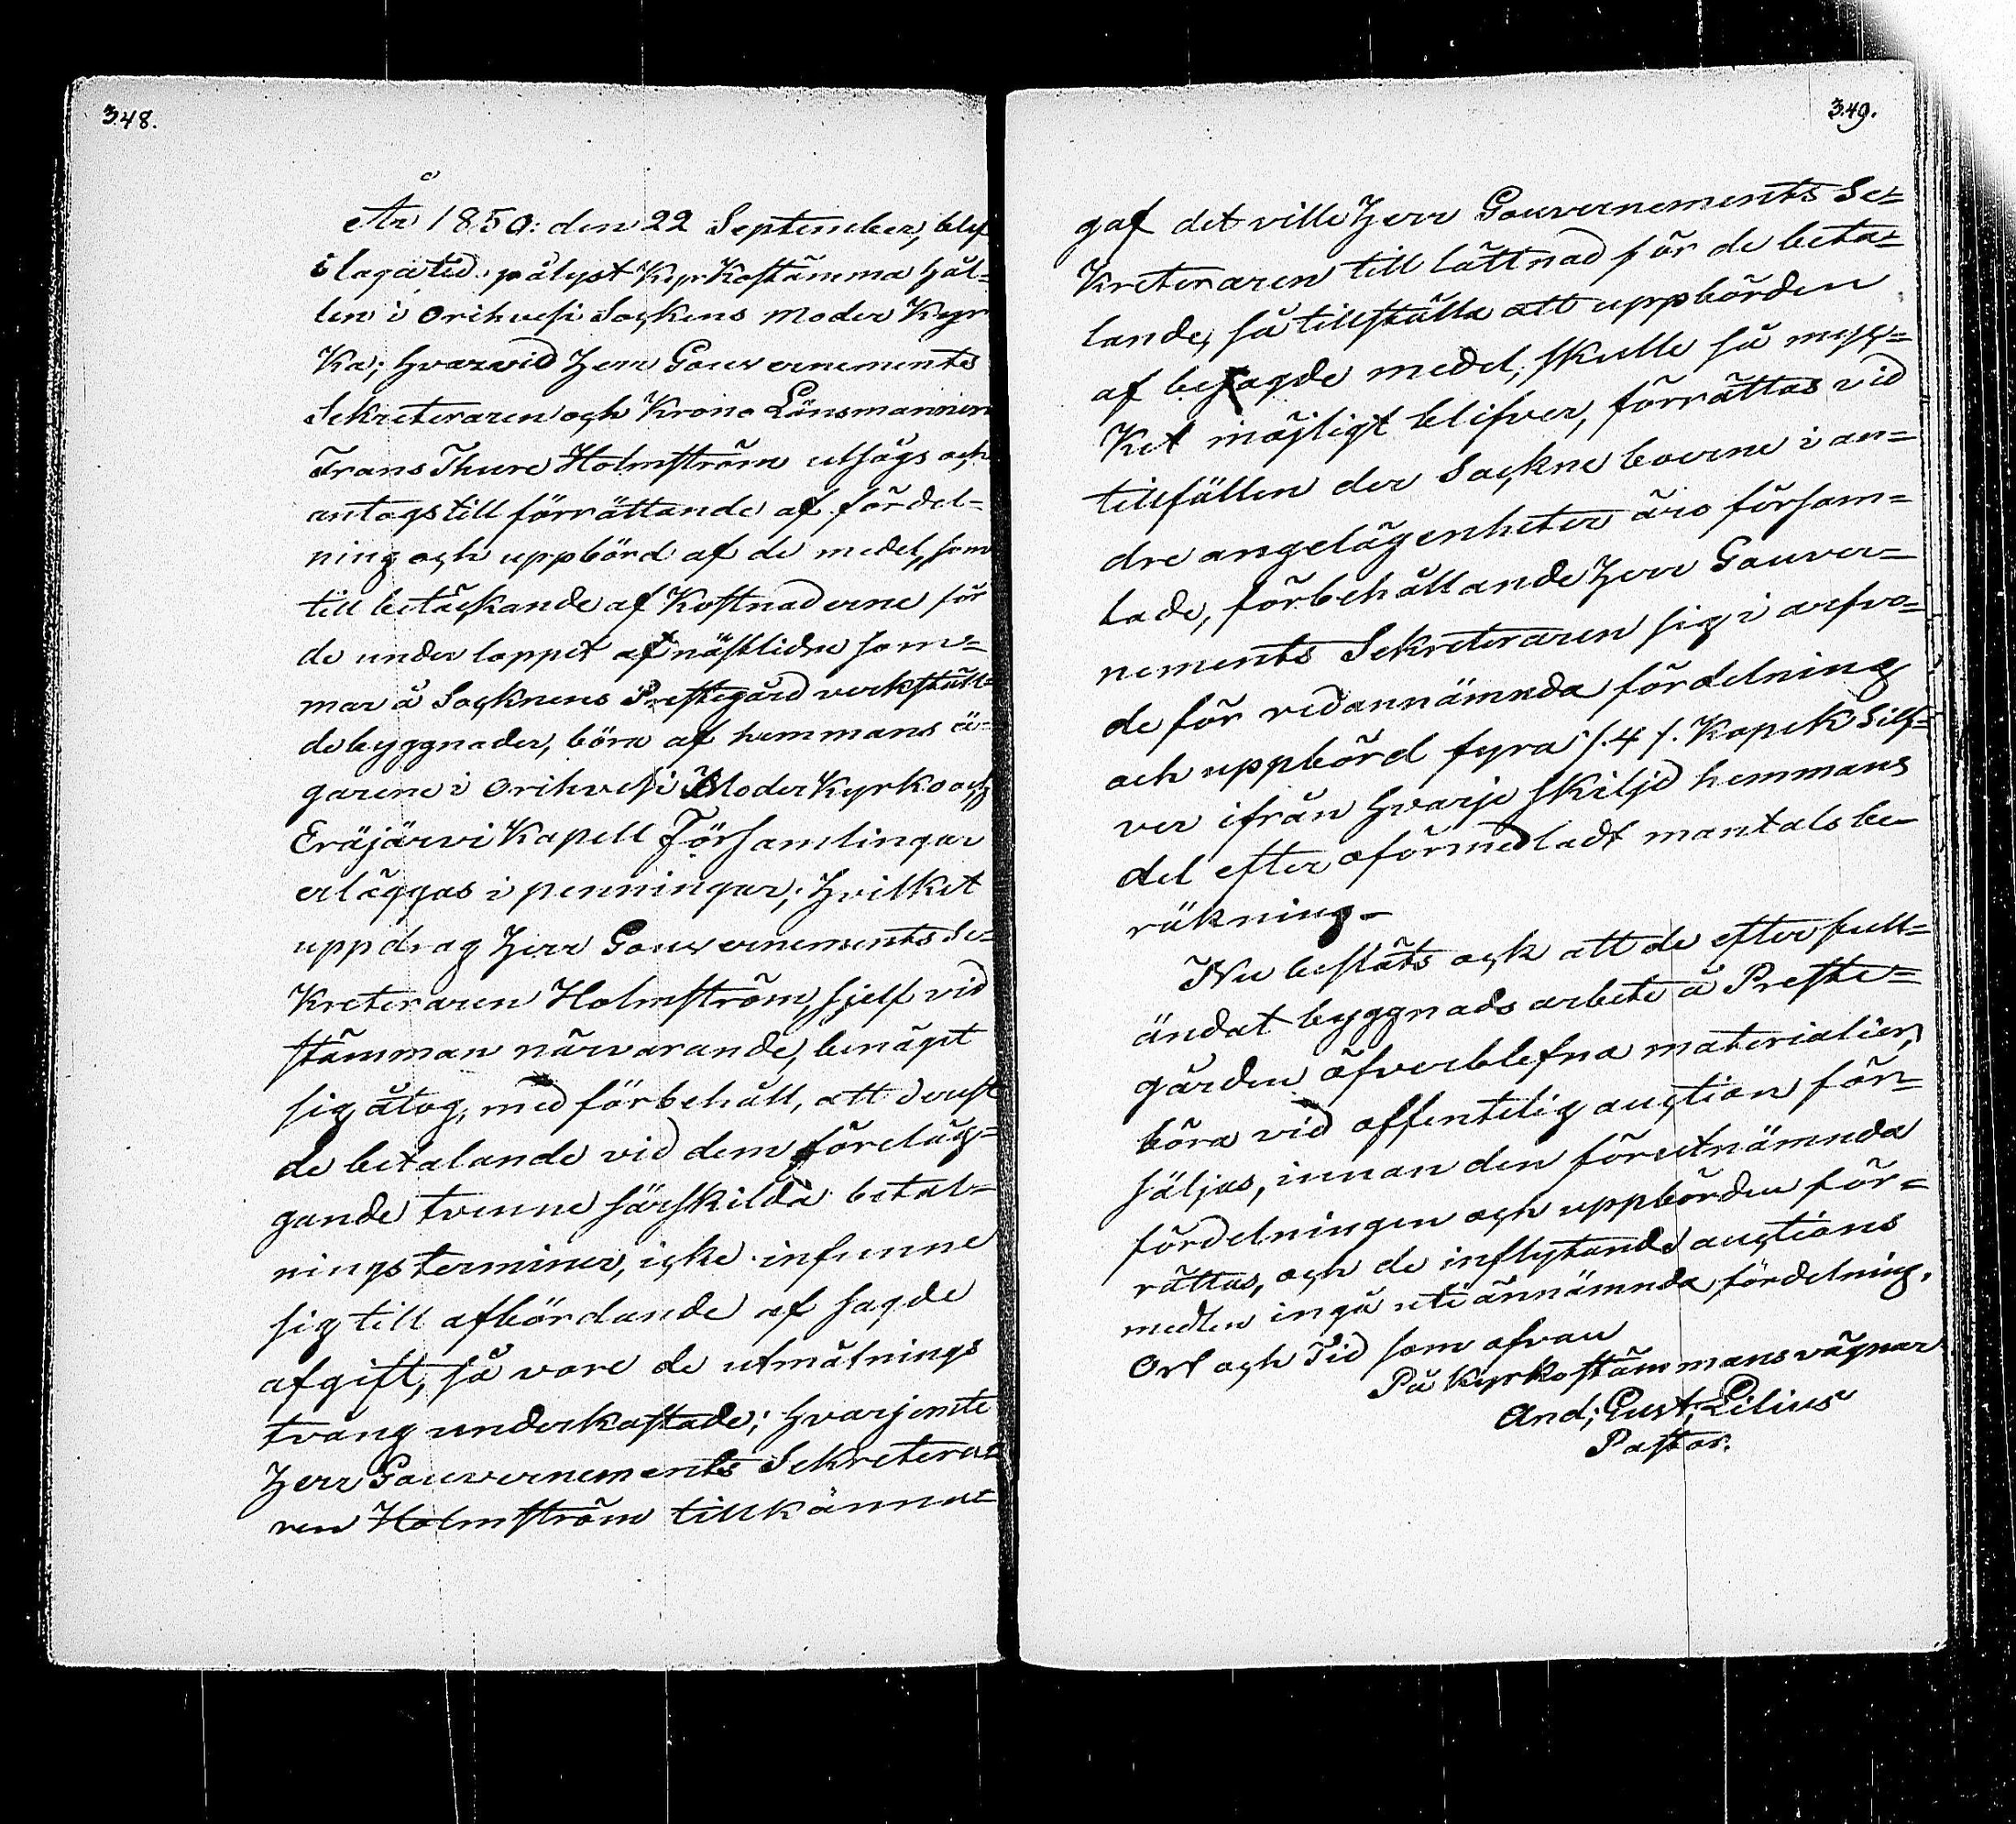 348.
År 1850: den 22 September, blef
i laga tid pålyst KyrKostämma hål-
len i Orihvesi Sockens Moder Kyr
Ka; hvarvid Herr Gouvernements
Sekreteraren och Krono Länsmannen
Frans Thure Holmström utsågs och
antogs till förrättande af fördel-
ning och uppbörd af de medel, som
till betäckande af Kostnaderne för
de under loppet af nästlidne som-
mar å Socknens Prestegård verkställ-
de byggnader, böra af hemmans ä-
garene i Orihvesi Moder Kyrko och
Eräjärvi Kapell Församlingar
erläggas i penningar; hvilket
uppdrag Herr Gouvernements Se-
Kreteraren Holmström, sjelf vid
stämman närvarande, benäget
sig åtog, med förbehåll, att derest
de betalande vid dem föreläg-
gande tvenne särskilda betal-
nings terminer, icke infunne
sig till afbördande af sagde
afgift, så vore de utmätnings
tvång underkastade; hvarjemte
Herr Gouvernements Sekretera-
ren Holmström tillkänna-
349.
gaf det ville Herr Gouvernements Se-
Kreteraren till lättnad för de beta-
lande, så tillställa att uppbörden
af besagde medel, skulle så myc-
Ket möjligt blifver, förrättas vid
tillfällen der Sockneboerne i an-
dre angelägenheter äro försam-
lade, förbehållande Herr Gouver-
nements Sekreteraren sig i arfvo-
de för redannämnda fördelning
och uppbörd fyra /.4/. Kopek Silf-
ver ifrån hvarje skiljd hemmans
del efter oförmedladt mantals be-
räkning.
Nu beslöts ock att de efter full-
ändat byggnads arbete å Preste-
gården öfverblefna materialier,
böra vid offentelig auction för-
säljas, innan den föret nämnda
fördelningen och uppbörden för-
rättas, och de inflytande auctions
medlen ingå uti ännämnda fördelning.
Ort och Tid som ofvan
På Kyrkostämmans vägnar
And; Gust; Lilius
Pastor.